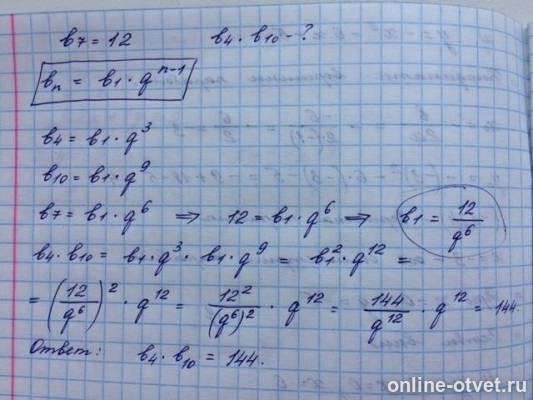 b₇ = 12 b₄ · b₁₀ - ?
bₙ = b₁ · qⁿ⁻¹
b₄ = b₁ · q³
b₁₀ = b₁ · q⁹
b₇ = b₁ · q⁶ ⇒ 12 = b₁ · q⁶ ⇒ b₁ = 12/q⁶
b₄ · b₁₀ = b₁ · q³ · b₁ · q⁹ = b₁² · q¹² =
= (12/q⁶)² · q¹² = 12²/(q⁶)² · q¹² = 144/q¹² · q¹² = 144.
Ответ: b₄ · b₁₀ = 144.
online-otvet.ru